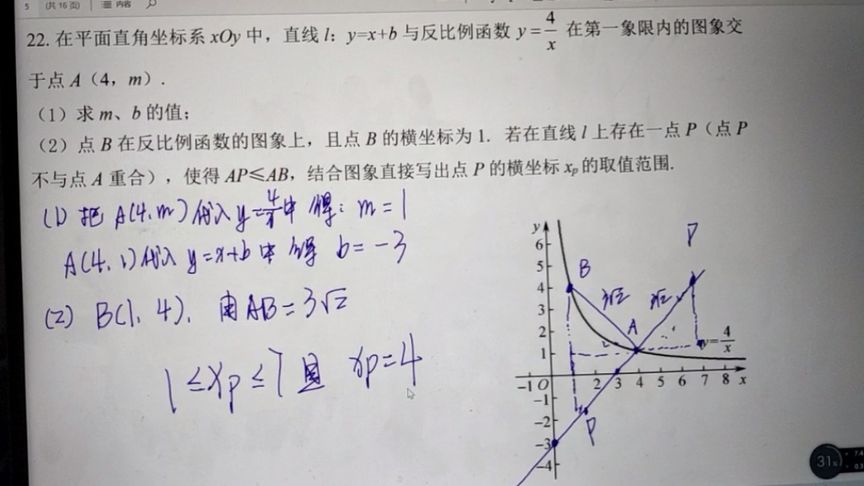 5 (共 16 页) 内容
22. 在平面直角坐标系 xOy 中，直线 l：y=x+b 与反比例函数 y=4/x 在第一象限内的图象交
于点 A（4，m）.
（1）求 m、b 的值；
（2）点 B 在反比例函数的图象上，且点 B 的横坐标为 1．若在直线 l 上存在一点 P（点 P
不与点 A 重合），使得 AP≤AB，结合图象直接写出点 P 的横坐标 xₚ 的取值范围.
(1) 把 A(4,m) 代入 y=4/x 中 得：m=1
A(4,1)代入 y=x+b 中 得 b=-3
(2) B(1,4), 由 AB=3√2
1≤xp≤7 且 xp=4
y
6
5
4
3
2
1
-1 O 2 3 4 5 6 7 8 x
-1
-2
-3
-4
B
3√2
3√2
P
A
y=4/x
P
31